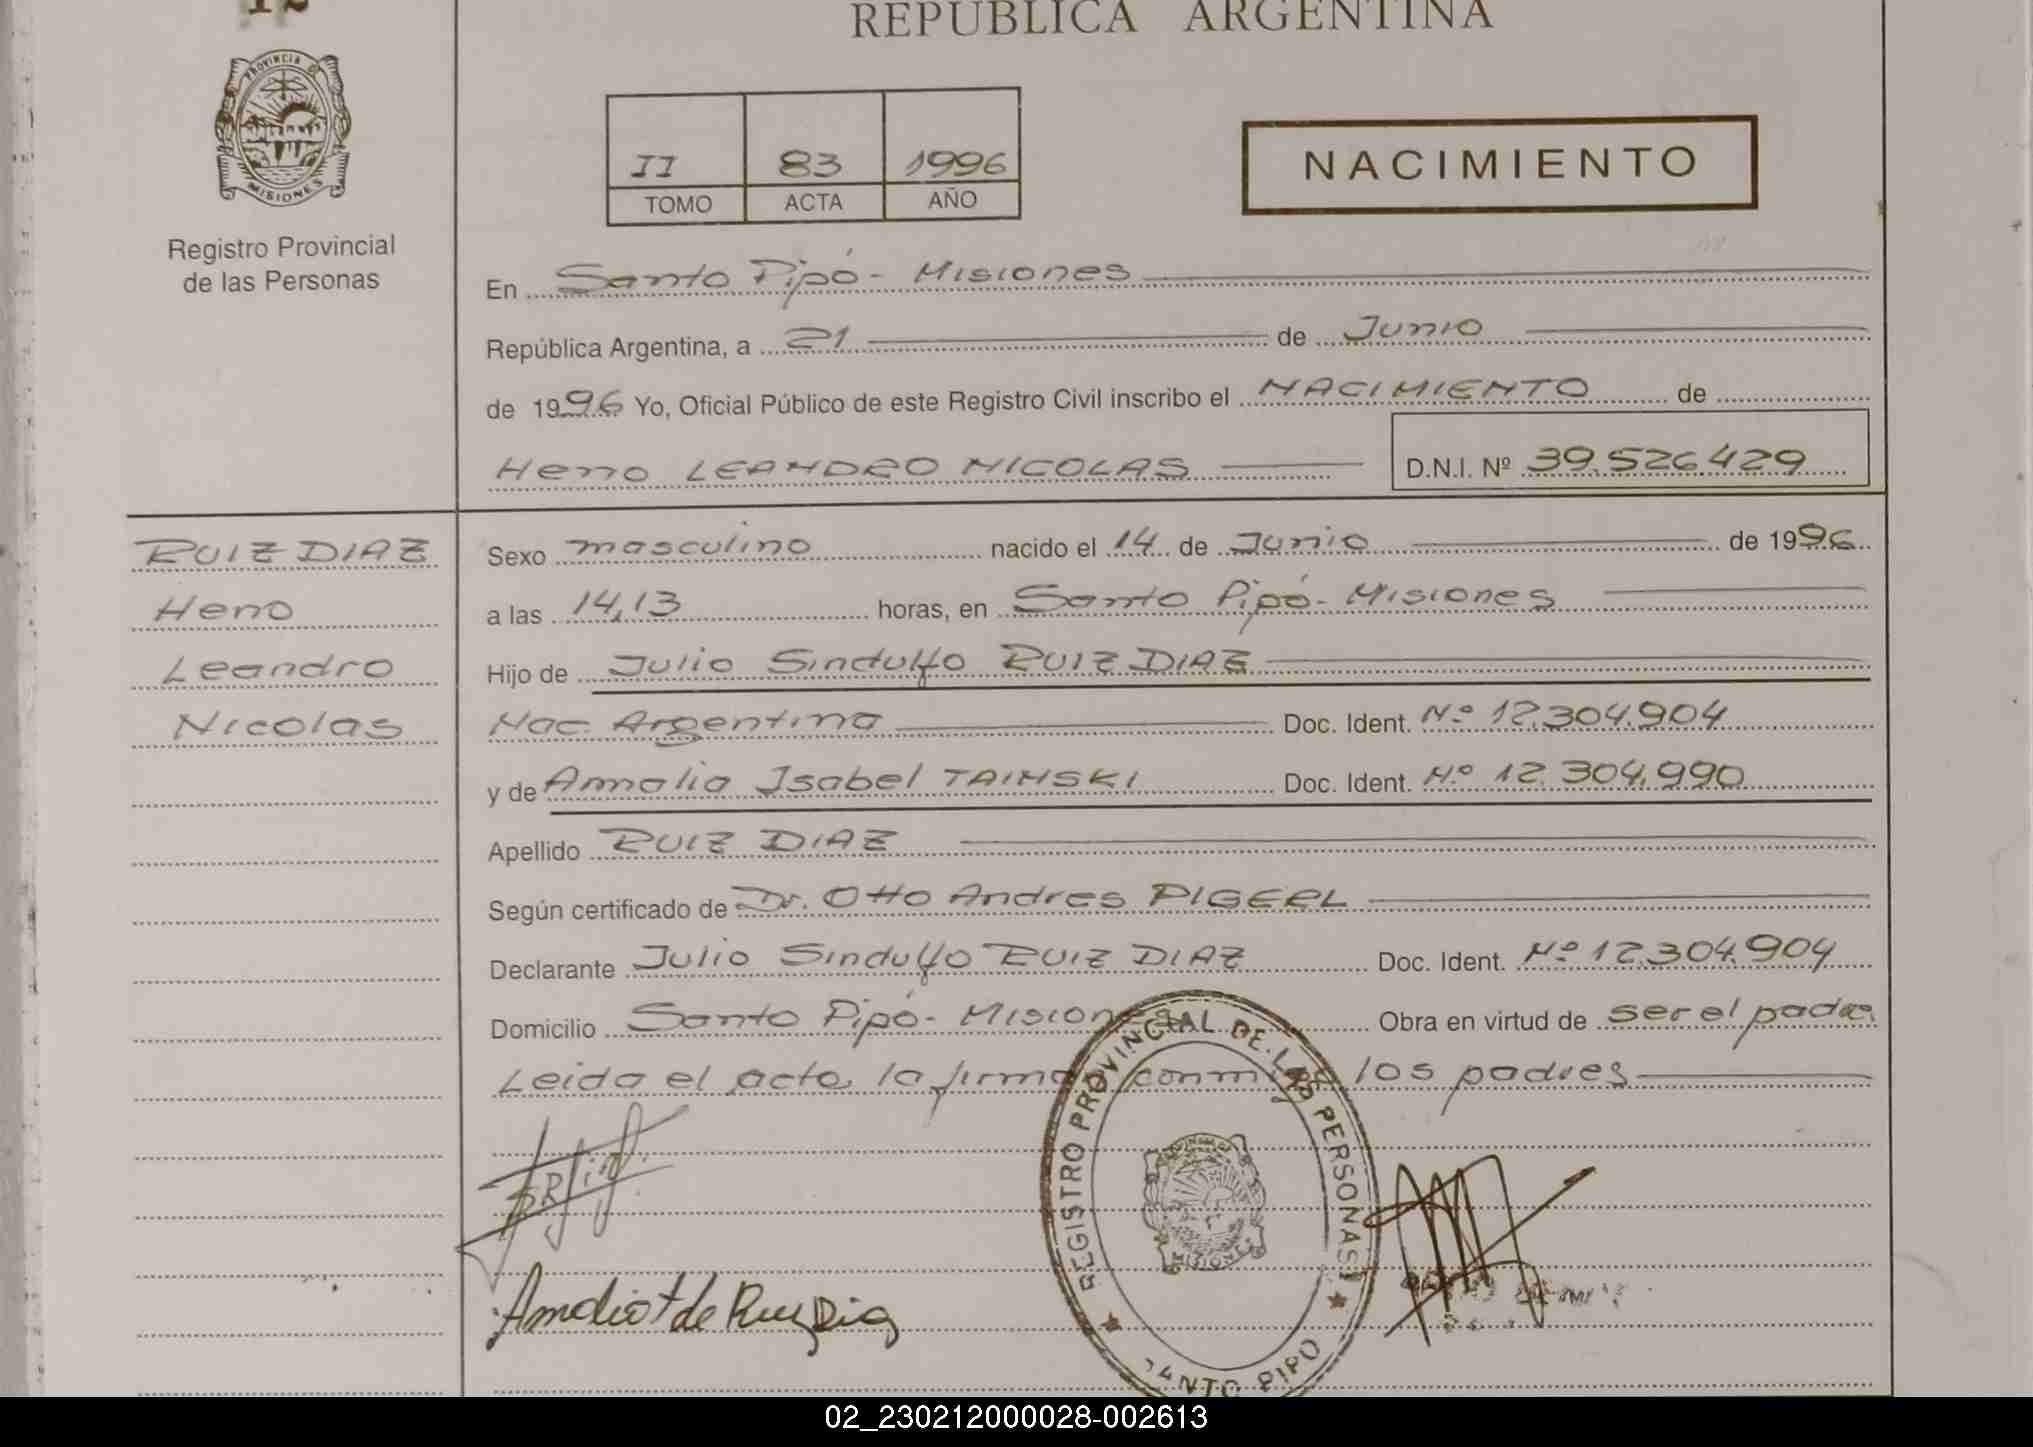 REPUBLICA ARGENTINA
PROVINCIA DE
MISIONES
Registro Provincial
de las Personas
II 83 1996
TOMO ACTA AÑO
NACIMIENTO
En Santo Pipó - Misiones
República Argentina, a 21 de Junio
de 1996 Yo, Oficial Público de este Registro Civil inscribo el NACIMIENTO de
Heno LEANDRO NICOLAS D.N.I. Nº 39.526.429
RUIZ DIAZ
Heno
Leandro
Nicolas
Sexo masculino nacido el 14 de Junio de 1996
a las 14,13 horas, en Santo Pipó - Misiones
Hijo de Julio Sindulfo RUIZ DIAZ
Nac. Argentina Doc. Ident. Nº 12.304.904
y de Amalia Isabel TAINSKI Doc. Ident. Nº 12.304.990
Apellido RUIZ DIAZ
Según certificado de Dr. Otto Andres PIGERL
Declarante Julio Sindulfo RUIZ DIAZ Doc. Ident. Nº 12.304.904
Domicilio Santo Pipó - Misiones Obra en virtud de ser el padre
Leida el acta, la firman conmigo los padres
REGISTRO PROVINCIAL DE LAS PERSONAS
SANTO PIPO
Amalia T de Ruiz Diaz
02_230212000028-002613